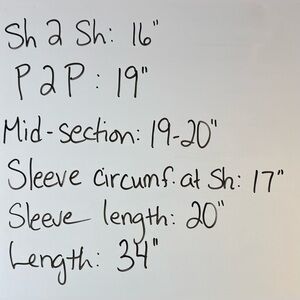 Sh 2 Sh: 16"
P 2 P: 19"
Mid-section: 19-20"
Sleeve circumf. at Sh: 17"
Sleeve length: 20"
Length: 34"